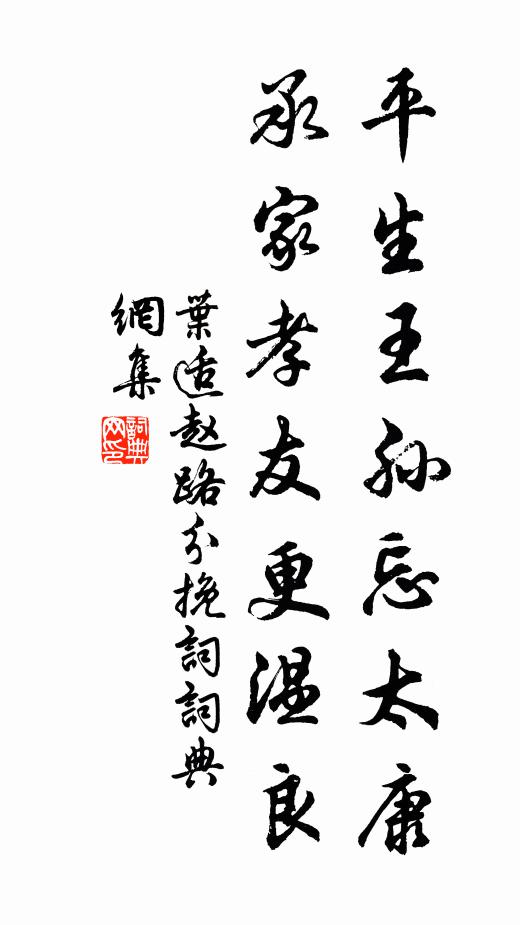 平生王孙忘太康
承家孝友更温良
葉适赵路分挽詞詞典
網集
詞典
网印